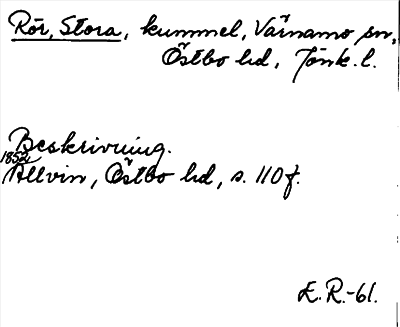 Rör, Stora, kummel, Värnamo sn,
Östbo hd, Jönk. l.
Beskrivning.
1852
Allvin, Östbo hd, s. 110 f.
E. R.-61.